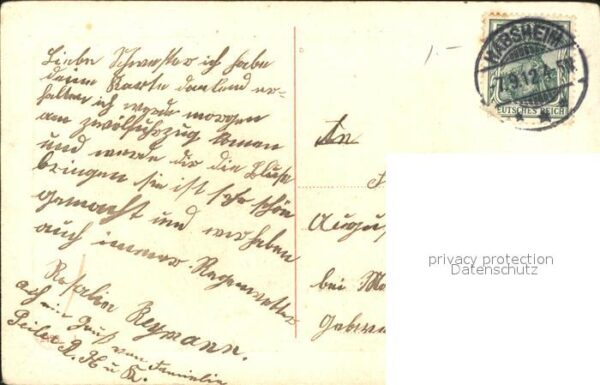 Liebe Schwester ich habe
deine Karte dankend er-
halten ich werde morgen
am zwölfuhrzug komen
und werde dir die Bluse
bringen sie ist sehr schön
gemacht und wir haben
auch immer Regenwetter
Rosalin Reymann.
ein Gruß von Familie
1.-
HABSHEIM
1.9.12.
DEUTSCHES REICH
An
Augu
bei
Gebw
privacy protection
Datenschutz